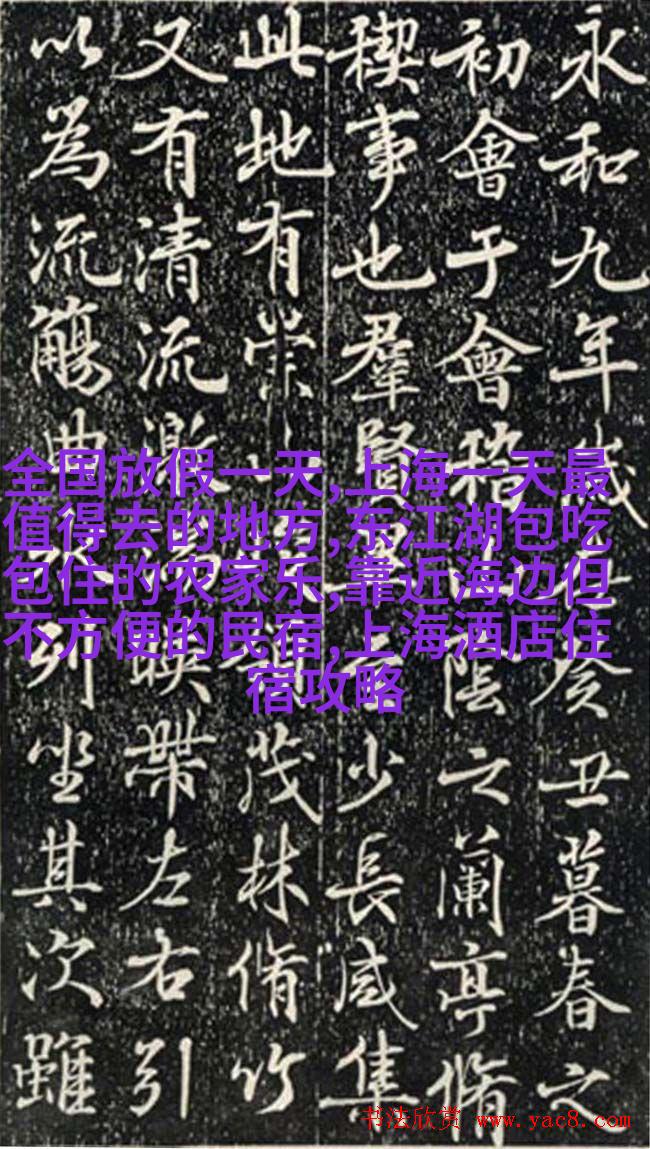 永和九年歲在癸丑暮春之
初會于會稽山陰之蘭亭脩
禊事也羣賢畢至少長咸集
此地有崇山峻領茂林脩竹
又有清流激湍映帶左右引
以為流觴曲水列坐其次雖
全国放假一天,上海一天最
值得去的地方,东江湖包吃
包住的农家乐,靠近海边但
不方便的民宿,上海酒店住
宿攻略
书法欣赏 www.yac8.com